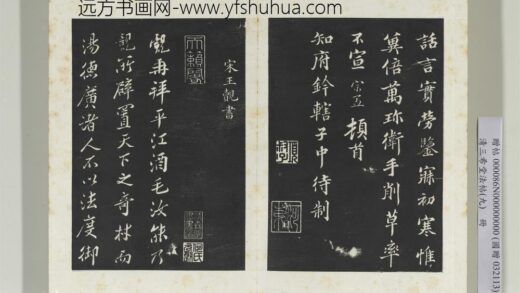 远方书画网-www.yfshuhua.com
話言實勞鑒寐初寒惟
冀倍萬珎衛手削草率
不宣 頓首
知府鈐轄子中待制
宋王覿書
天籟閣
覿再拜平江酒毛汝能乃
親所辟置天下之奇材而
湯德廣渚人不以法度御
贈帖 000086N000000000 (國贈 032113)
清三希堂法帖(九) 冊